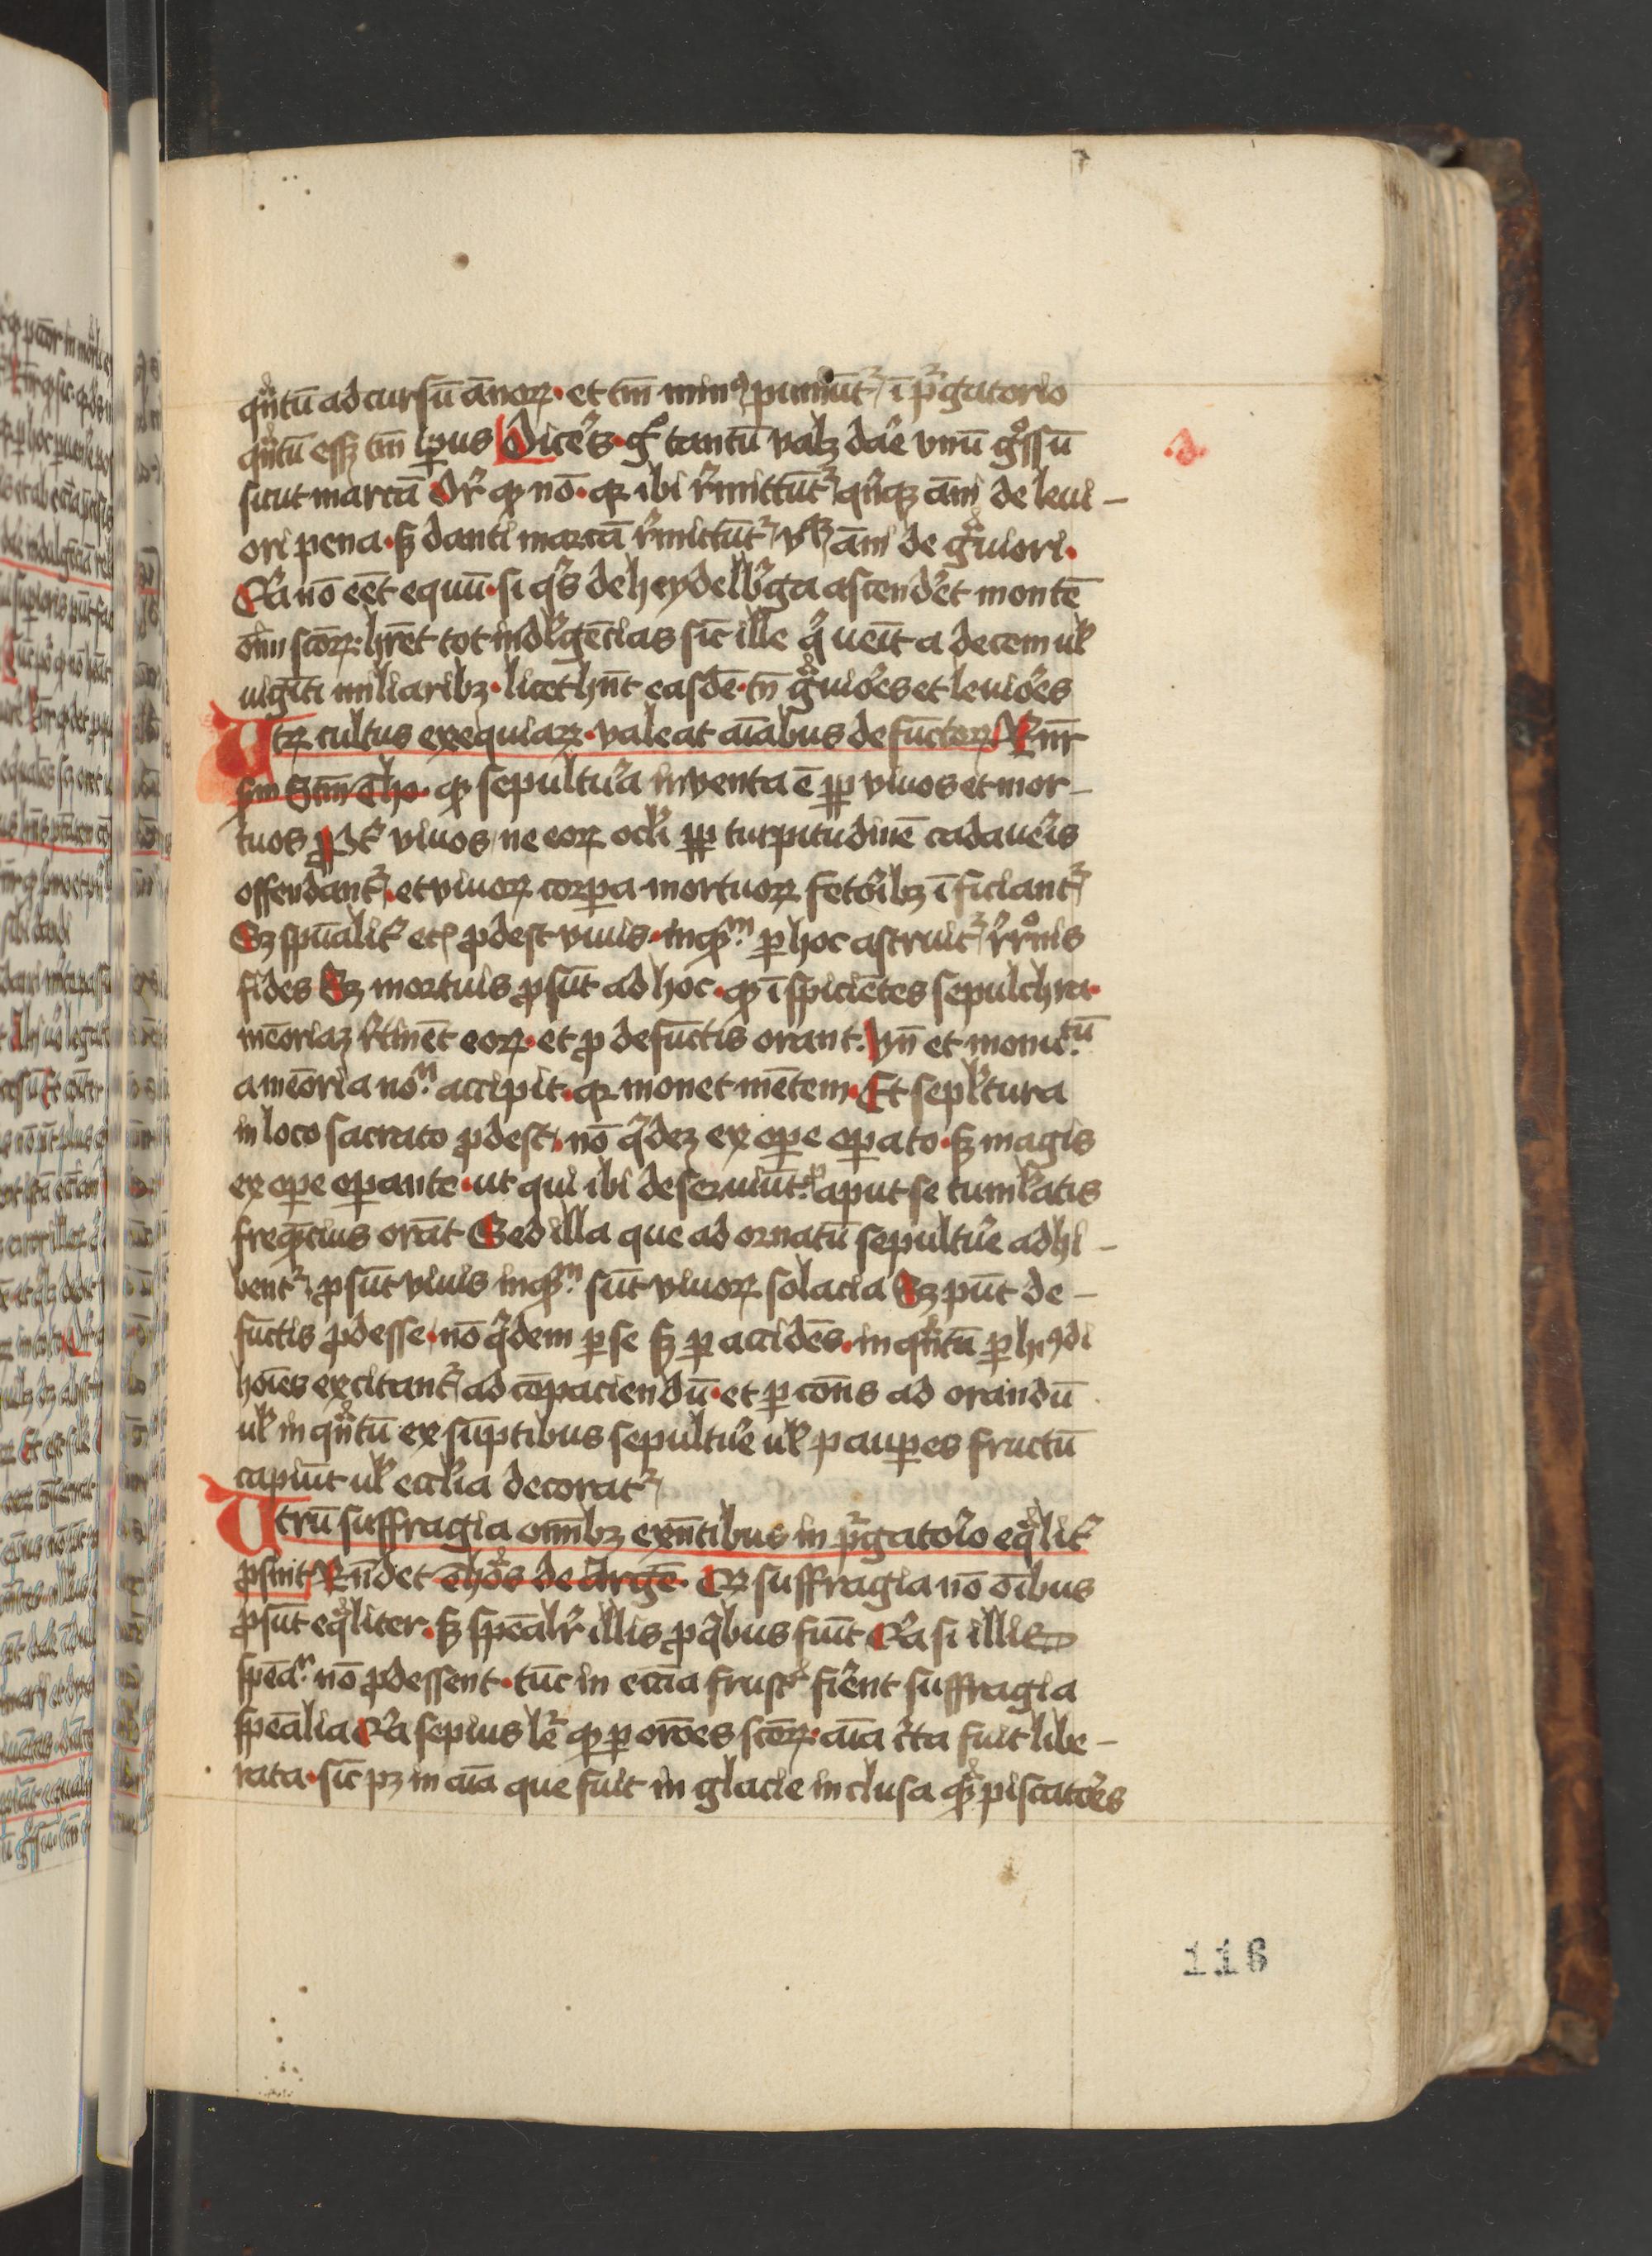 qntū ad cursū ānoꝝ · et tm̄ minꝰ puniūt᷑ ī pᵒgatorio
qntū essꝫ tm̄ ip̄us Dice᷑tꝫ · gͦ tantū valꝫ da᷑e vnū gͦssū
sicut marcā Dr̄ ꝙ nō · qꝛ ibi r᷑mittūt᷑ qn̄qꝫ ām de leui –
ori pena · sꝫ danti marcā r᷑mittūt᷑ āni de gͣuiori ·
Qꝛ nō eēt equū · si qͥs de heydelb᷑ga ascend᷑et montē
oīm scōꝝ · hr̄et tot indl᷑gēcias sic̄ ille qͥ ueīt a decem ul̄
uigīti miliaribꝫ · licet hn̄t easdē · tn̄ gͣuio᷑es et leuio᷑es
Utꝝ cultus exequiaꝝ · valeat aīabus defūctoꝝ Rn̄r
sm̄ Stm̄ Tho · ꝙ sepultu᷑a inventa ē ꝓpt̄ viuos et mor –
tuos ꝓpt̄ viuos / ne eoꝝ ocl̄i ꝓpt̄ turpitudinē cadaue᷑is
offendant᷑ · et viuoꝝ corꝑa mortuoꝝ feto᷑ibꝫ īficiant᷑
Sꝫ sp̄ualit᷑ ec̄ ꝓdest viuis · inqͣꝫm ꝑ hoc astruit᷑ r᷑rͦnis
fides Sꝫ mortuis ꝓsūt ad hoc · ꝙ īspiciētes sepulchra ·
mēoriaꝫ r᷑tinēt eoꝝ · et ꝓ defūctis orant · vn̄ et monic̄tū
a mēoria noᵐ accipit · qꝛ monet mētem · Et sepl᷑tura
in loco sacrato ꝓdest · nō qͥdeꝫ ex oꝑe oꝑato · sꝫ magis
ex oꝑe oꝑante · ut qui ibi deseruiūt · aput se tuml̄atis
freqͣcius orāt Sed illa que ad ornatū sepultu᷑e adhi –
bent᷑ ꝓsūt viuis inqͣꝫm sūt viuoꝝ solacia Sꝫ pn̄t de –
fūctis ꝓdesse · nō qͥdem ꝑ se sꝫ ꝑ accidēs · in qntū ꝑ hꝰdi
hoīes excitant᷑ ad cōpaciendū · et ꝑ cōns ad orandū
ul̄ in qntū ex sūptibus sepultu᷑e ul̄ pauꝑes fructū
capiūt ul̄ eccl̄ia decorat᷑
Utrū suffragia omībꝫ exn̄tibus in pᵒgatoio eqͣlit᷑
ꝓsint Rn̄det thoͣs de Argē · Qꝙ suffragia nō oībus
ꝓsūt eqͣliter · sꝫ spēalr̄ illis ꝓ qͥbus fiūt Qꝛ si illis
spēaͬ nō ꝓdessent · tūc in eccīa frustͣ fie᷑nt suffragia
spēalia Qꝛ sepius le᷑ ꝙ ꝑ orōes scōꝝ · aīa c᷑ta fuit libe –
rata · sic̄ pꝫ in aīa que fuit in glacie inclusa qͣꝫ piscato᷑es
116